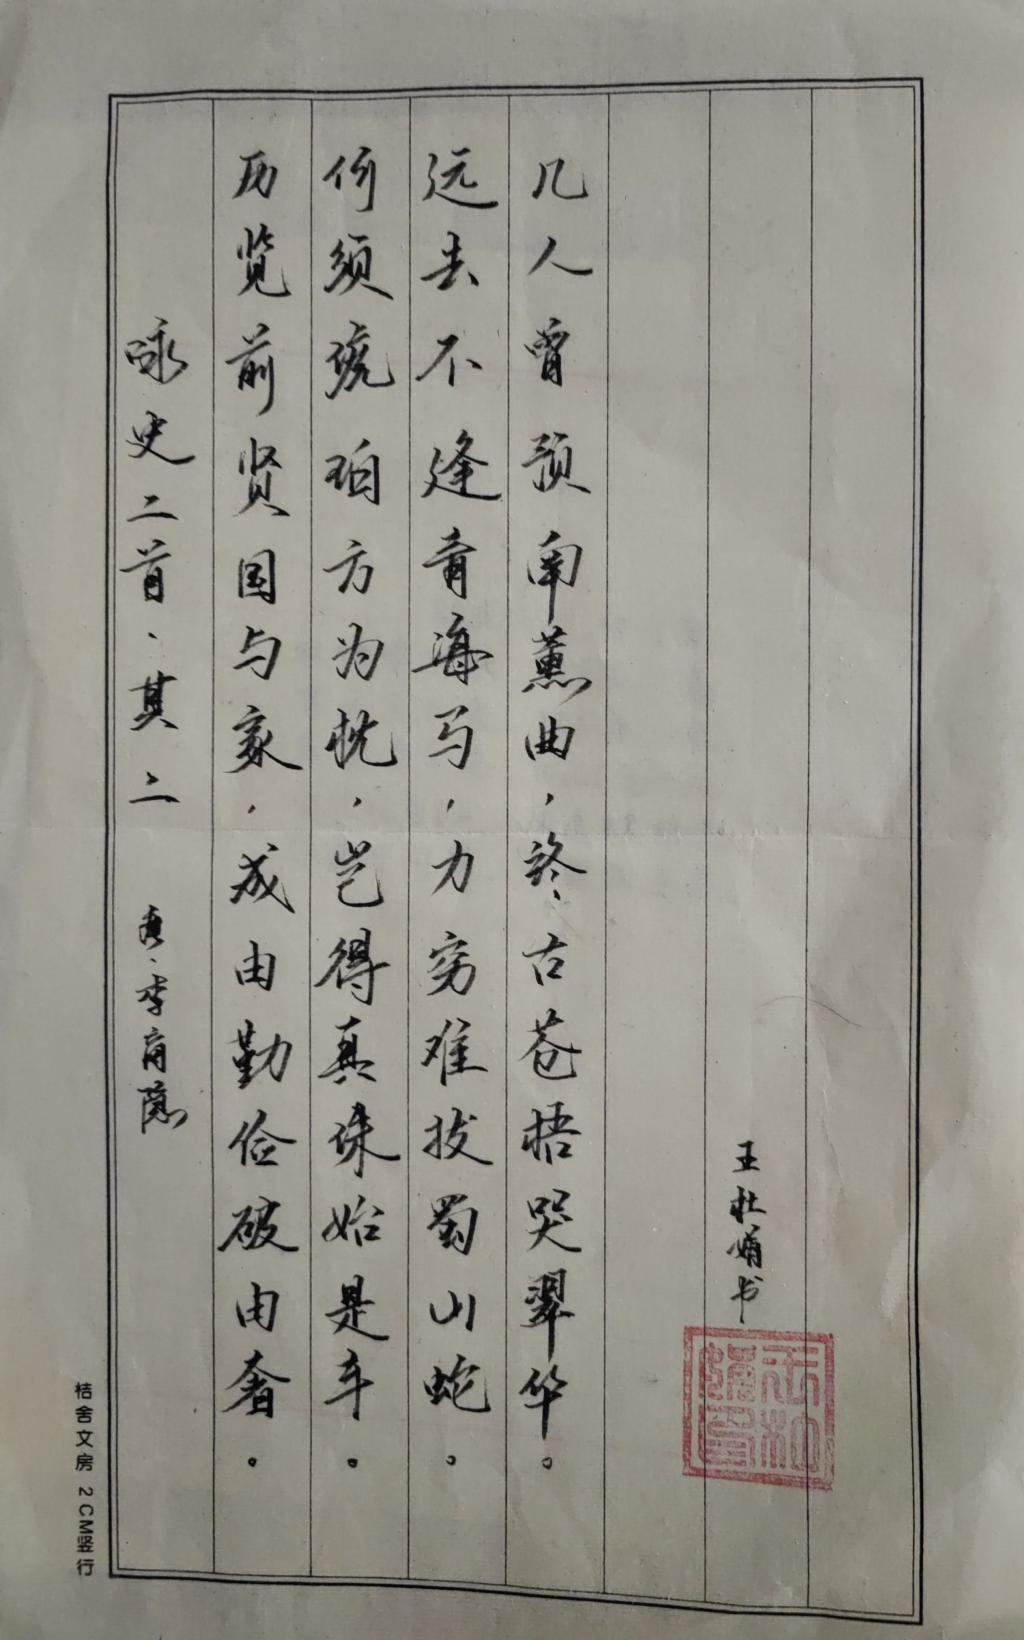 咏史二首、其二 唐、李商隐
历览前贤国与家，成由勤俭破由奢。
何须琥珀方为枕，岂得真珠始是车。
远去不逢青海马，力穷难拔蜀山蛇。
几人曾预南薰曲，终古苍梧哭翠华。
王杜娟书
桔舍文房 2CM竖行